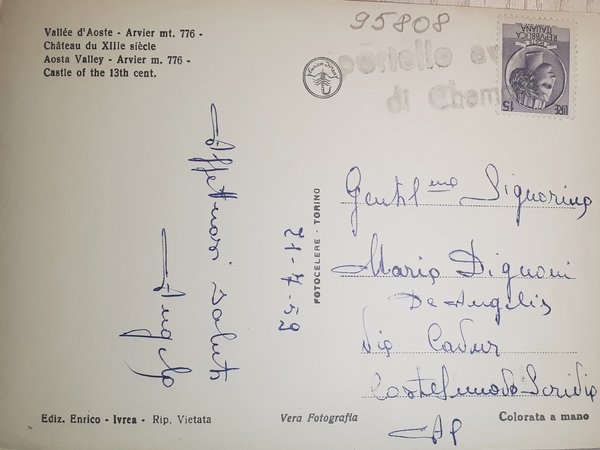 Vallée d'Aoste - Arvier mt. 776 -
Château du XIIIe siècle
Aosta Valley - Arvier m. 776 -
Castle of the 13th cent.
95808
di Cham
REPUBBLICA
ITALIANA
LIRE 15
Affettuosi saluti
Angelo
21-7-59
FOTOCELERE - TORINO
Gentil.ma Signorina
Maria
De Angelis
Via Cavour
Scrivia
AL
Ediz. Enrico - Ivrea - Rip. Vietata
Vera Fotografia
Colorata a mano